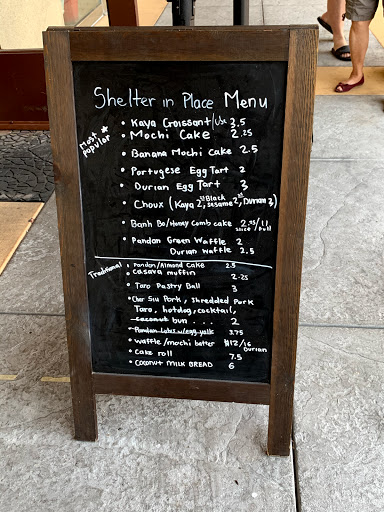 Shelter in Place Menu
Most ★ Popular
• Kaya Croissant/Ube 3.5
• Mochi Cake 2.25
• Banana Mochi Cake 2.5
• Portugese Egg Tart 2
• Durian Egg Tart 3
• Choux (Kaya 2, Black Sesame 2, Durian 3)
• Banh Bo/Honey Comb cake 2.75/11 slice/full
• Pandan Green Waffle 2
Durian Waffle 2.5
Traditional
• Pandan/Almond Cake 2.5
• Casava muffin 2.25
• Taro Pastry Ball 3
• Char Siu Pork, Shredded Pork
Taro, hotdog, cocktail,
coconut bun . . . 2
• Pandan Lotus w/egg yolk 3.75
• Waffle/mochi batter $12/16 Durian
• Cake roll 7.5
• Coconut MILK BREAD 6